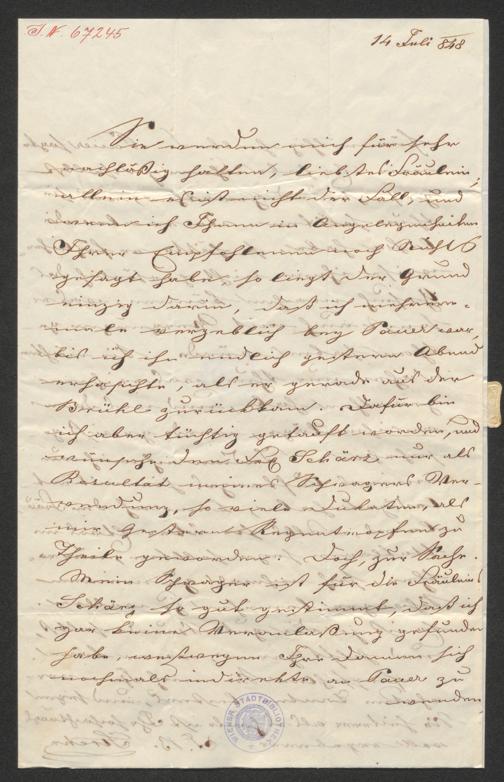 I. N. 67245
14 Juli 848
Sie werden mich für sehr
nachläßig halten, liebstes Fräulein,
allein es ist nicht der Fall, und
wenn ich Ihnen in Angelegenheiten
Ihrer Empfohlenen noch Nichts
gesagt habe, so liegt der Grund
einzig darin, daß ich mehrere-
male vergeblich bey Pauer war,
bis ich ihn endlich gestern Abend
erhaschte, als er gerade aus der
Brühl zurückkam. Dafür bin
ich aber tüchtig getauft worden, und
wünsche den Schärz nur als
Resultat meines Schwagers Ver-
wendung, so viele Dukaten, als
mir gestern Regentropfen zu
Theile geworden. Doch, zur Sache.
Mein Schwager ist für die Fräuleins
Schärz so gut gestimmt, daß ich
gar keine Veranlaßung gefunden
habe, weßwegen Ihre Damen sich
nochmals indirekte an Pauer zu
wenden
WIENER STADTBIBLIOTHEK